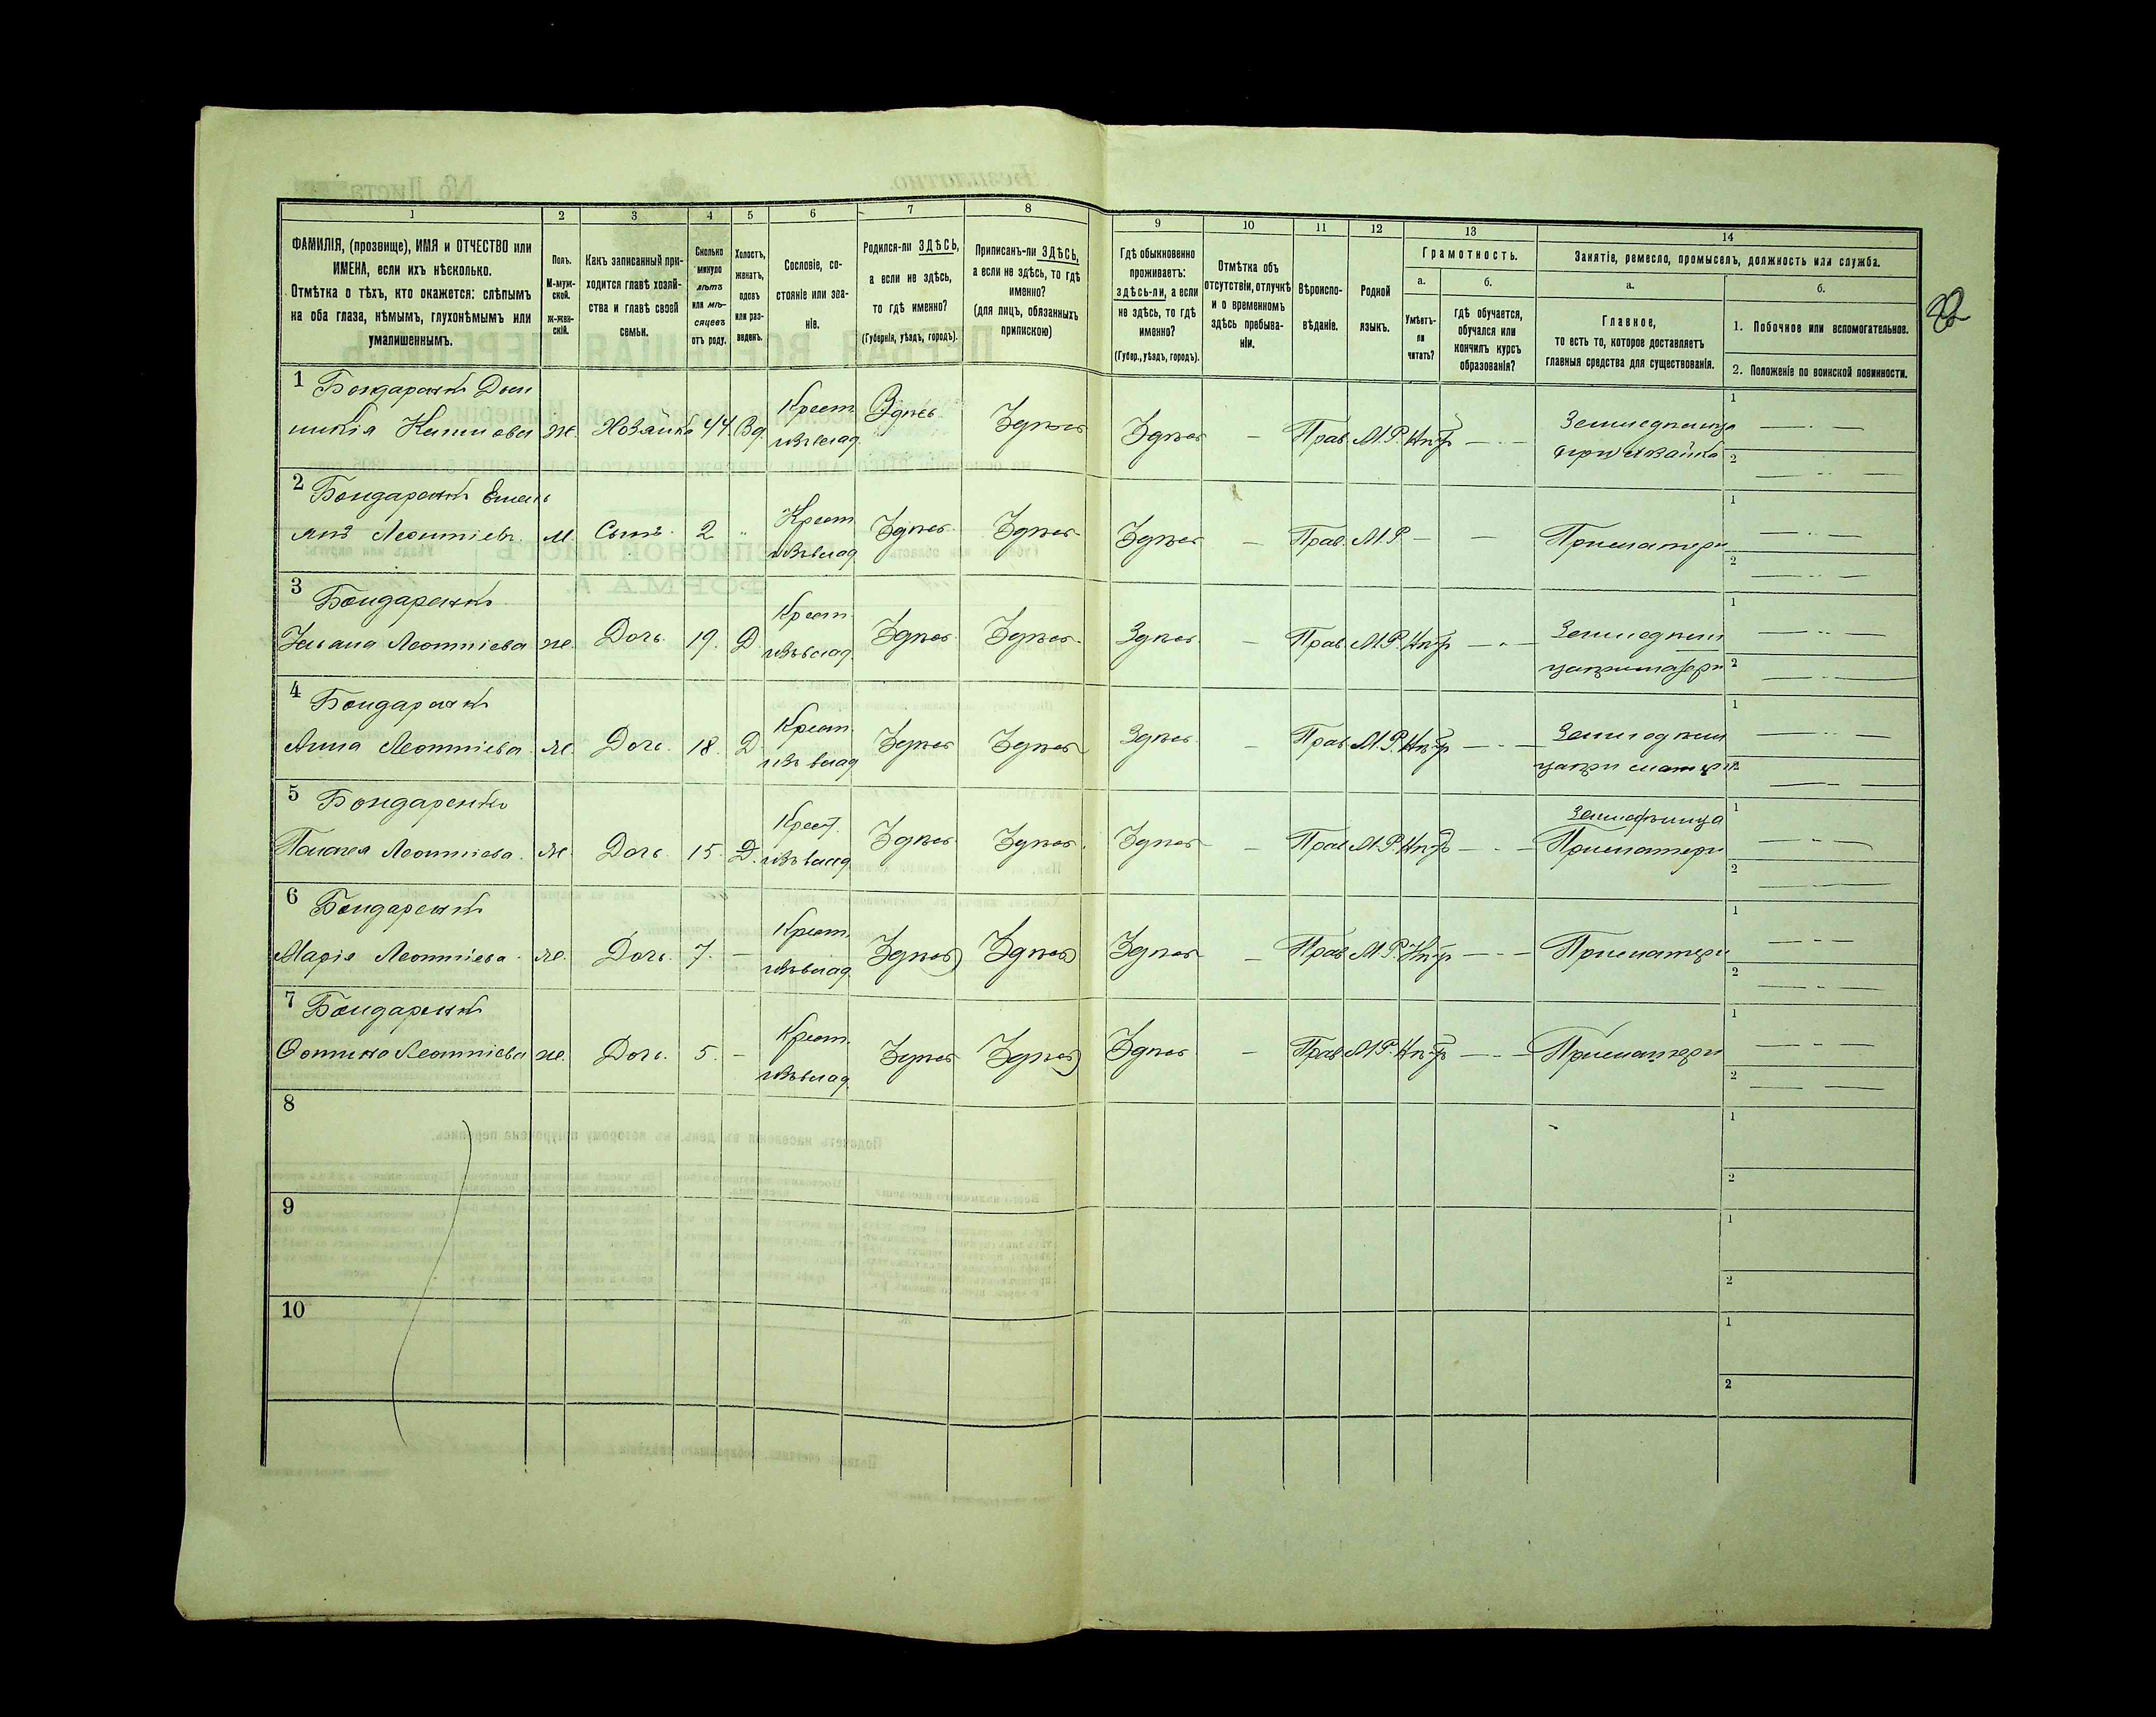 1 2 3 4 5 6 7 8 9 10 11 12 13 14
ФАМИЛІЯ, (прозвище), ИМЯ и ОТЧЕСТВО или
ИМЕНА, если ихъ нѣсколько.
Отмѣтка о тѣхъ, кто окажется: слѣпымъ
на оба глаза, нѣмымъ, глухонѣмымъ или
умалишеннымъ.
Полъ.
М-муж-
ской.
ж-жен-
скій.
Какъ записанный при-
ходится главѣ хозяй-
ства и главѣ своей
семьи.
Сколько
минуло
лѣтъ
или мѣ-
сяцевъ
отъ роду.
Холостъ,
женатъ,
вдовъ
или раз-
веденъ.
Сословіе, со-
стояніе или зва-
ніе.
Родился-ли ЗДѢСЬ,
а если не здѣсь,
то гдѣ именно?
(Губернія, уѣздъ, городъ).
Приписанъ-ли ЗДѢСЬ,
а если не здѣсь, то гдѣ
именно?
(для лицъ, обязанныхъ
припискою)
Гдѣ обыкновенно
проживаетъ:
здѣсь-ли, а если
не здѣсь, то гдѣ
именно?
(Губер., уѣздъ, городъ).
Отмѣтка объ
отсутствіи, отлучкѣ
и о временномъ
здѣсь пребыва-
ніи.
Вѣроиспо-
вѣданіе.
Родной
языкъ.
Грамотность.
а.
Умѣетъ-
ли
читать?
б.
гдѣ обучается,
обучался или
кончилъ курсъ
образованія?
Занятіе, ремесло, промыселъ, должность или служба.
а.
Главное,
то есть то, которое доставляетъ
главныя средства для существованія.
б.
1. Побочное или вспомогательное.
2. Положеніе по воинской повинности.
1 Бондаренко
ж. Хозяйка 44. Вд. Крест. изъ влад. Здѣсь Здѣсь Здѣсь — Прав. М.Р. — · —
1 — · —
2 — · · —
2 Бондаренко Емель
янъ Леонтіевъ. м. Сынъ. 2 „ Крест. изъ влад. Здѣсь Здѣсь Здѣсь — Прав. М.Р — — При матери
1 — · · —
2 — · · —
3 Бондаренко
Ульяна Леонтіева ж. Дочь. 19. Д. Крест. изъ влад. Здѣсь Здѣсь Здѣсь — Прав. М.Р. — · — Земледѣли
ца при матери
1 — · · —
2 — · · —
4 Бондаренко
Анна Леонтіева ж. Дочь. 18. Д. Крест. изъ влад. Здѣсь Здѣсь Здѣсь — Прав. М.Р. — · — Земледѣли
ца при матери
1 — · · —
2 — —
5 Бондаренко
Леонтіева. ж. Дочь. 15. Д. Крест. изъ влад. Здѣсь Здѣсь Здѣсь — Прав М.Р. — · —
При матери
1 — · · —
2 —
6 Бондаренко
Марія Леонтіева. ж. Дочь. 7. — Крест. изъ влад. Здѣсь Здѣсь Здѣсь — Прав М.Р. — · — При матери
1 — · · —
2 — · · —
7 Бондаренко
Леонтіева ж. Дочь. 5. — Крест. изъ влад. Здѣсь Здѣсь Здѣсь — Прав. М.Р. — · — При матери
1 — · · —
2 — —
8
1
2
9
1
2
10
1
2